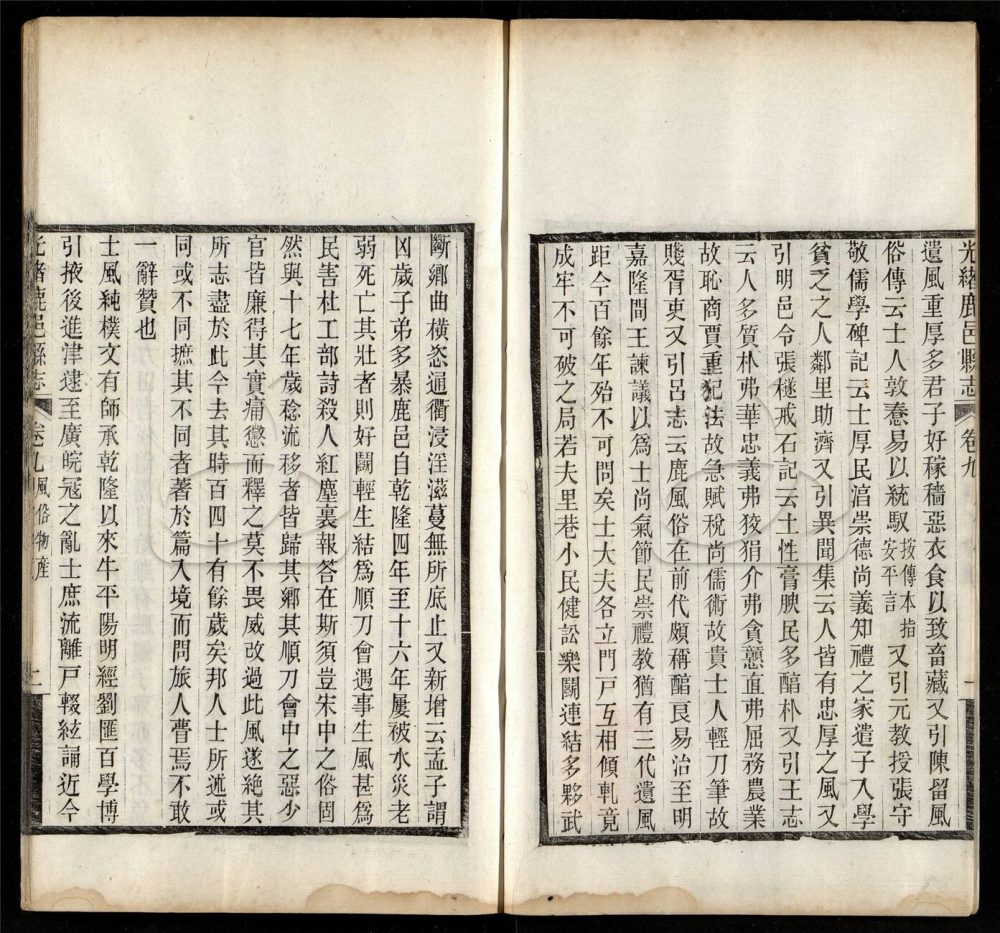 光緒鹿邑縣志 卷九 一
遺風重厚多君子好稼穡惡衣食以致畜藏又引陳留風
俗傳云士人敦惷易以統馭按傳本指安平言又引元教授張守
敬儒學碑記云士厚民淳崇德尚義知禮之家遣子入學
貧乏之人鄰里助濟又引異聞集云人皆有忠厚之風又
引明邑令張檖戒石記云土性膏腴民多醕朴又引王志
云人多質朴弗華忠義弗狡狷介弗貪戇直弗屈務農業
故恥商賈重犯法故急賦稅尚儒術故貴士人輕刀筆故
賤胥吏又引呂志云鹿風俗在前代頗稱醕良易治至明
嘉隆間王諫議以爲士尚氣節民崇禮教猶有三代遺風
距今百餘年殆不可問矣士大夫各立門戸互相傾軋竟
成牢不可破之局若夫里巷小民健訟樂鬭連結多夥武
斷鄉曲橫恣通衢浸淫滋蔓無所底止又新增云孟子謂
凶歲子弟多暴鹿邑自乾隆四年至十六年屢被水災老
弱死亡其壯者則好鬭輕生結爲順刀會遇事生風甚爲
民害杜工部詩殺人紅塵裏報答在斯須豈宋中之俗固
然與十七年歲稔流移者皆歸其鄉其順刀會中之惡少
官皆廉得其實痛懲而釋之莫不畏威改過此風遂絕其
所志盡於此今去其時百四十有餘歲矣邦人士所述或
同或不同摭其不同者著於篇入境而問旅人曹焉不敢
一辭贊也
士風純樸文有師承乾隆以來牛平陽明經劉匯百學博
引掖後進津逮至廣皖冠之亂士庶流離戸輟絃誦近今
光緒鹿邑縣志 卷九 風俗物產 二